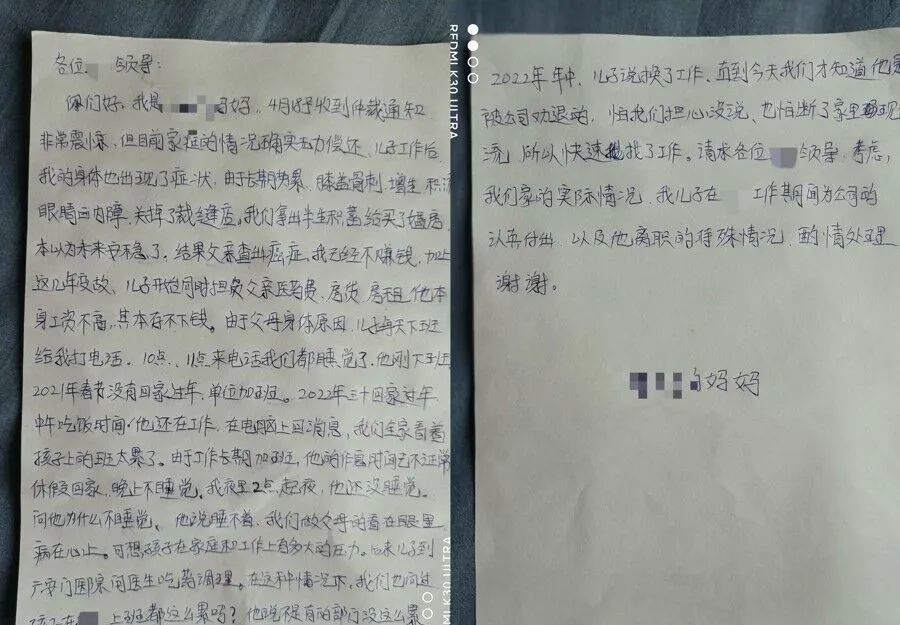 各位 领导:
你们好,我是 妈妈,4月18号收到仲裁通知
非常震惊,但目前家庭的情况确实无力偿还,儿子工作后
我的身体也出现了症状,由于长期劳累,膝盖骨刺,增生,积液
眼睛白内障,关掉了裁缝店。我们拿出半生积蓄给买了婚房,
本以为未来安稳了。结果父亲查出癌症,我已经不赚钱,加上
这几年变故、儿子开始同时担负父亲医药费、房贷、房租,他本
身工资不高,其本存不下钱。由于父母身体原因,儿子每天下班
给我打电话。10点、11点来电话我们都睡觉了,他刚下班
2021年春节没有回家过年,单位加班。2022年三十回家过年,
中午吃饭时间,他还在工作,在电脑上回消息,我们全家看着
孩子上的班太累了。由于工作长期加班,他的作息时间已不正常
休假回家,晚上不睡觉。我夜里2点起夜,他还没睡觉。
问他为什么不睡觉、他说睡不着、我们做父母的看在眼里,
病在心上。可想,孩子在家庭和工作上有多大的压力。后来儿子到
六 门医院问医生吃药调理。在这种情况下,我们也问过
孩子在 上班都这么累吗?他说不是有的部门没这么累
2022年年中,儿子说换了工作、直到今天我们才知道他是
被公司劝退的,怕我们担心没说、也怕断了家里 现
流,所以快速 找了工作。请求各位 领导,考虑,
我们家的实际情况,我儿子在 工作期间为公司的
认真付出,以及他离职的特殊情况,酌情处理
谢谢。
妈妈
REDMI K30 ULTRA
REDMI K30 ULTRA